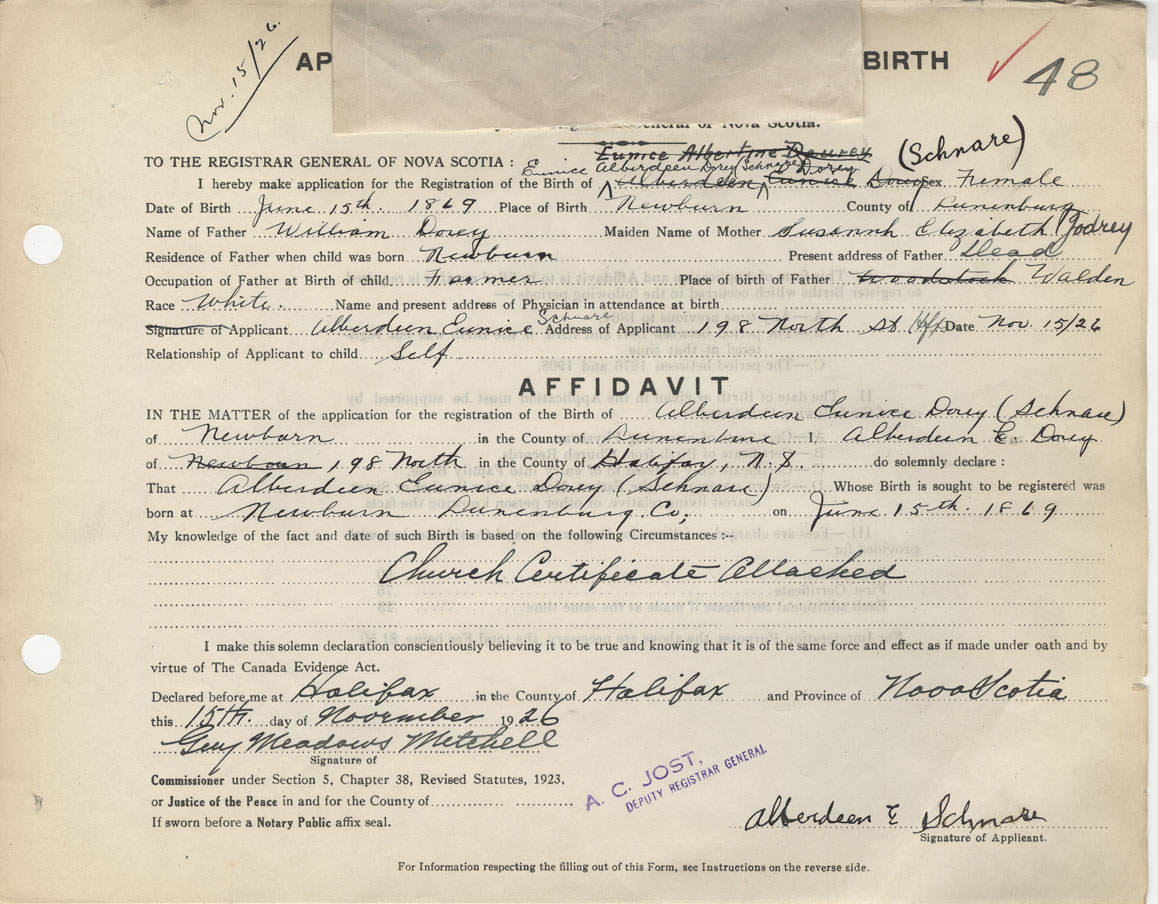 Nov. 15/26.
AP BIRTH
48
General of Nova Scotia.
Eunice Albertine Dowrey (Schnare)
TO THE REGISTRAR GENERAL OF NOVA SCOTIA : Eunice Alberdeen Dorey (Schnare) Dorey
I hereby make application for the Registration of the Birth of Alberdeen Eunice Dorey Sex Fremale
Date of Birth June 15th. 1869 Place of Birth Newburn County of Lunenburg
Name of Father William Dorey Maiden Name of Mother Susannah Elizabeth Godrey
Residence of Father when child was born Newburn Present address of Father Dead
Occupation of Father at Birth of child. Farmer Place of birth of Father Woodstock Walden
Race White. Name and present address of Physician in attendance at birth
Signature of Applicant Alberdeen Eunice Schnare Address of Applicant 198 North St Hfx Date Nov. 15/26
Relationship of Applicant to child Self
AFFIDAVIT
IN THE MATTER of the application for the registration of the Birth of Alberdeen Eunice Dorey (Schnare)
of Newburn in the County of Lunenburg I, Alberdeen E. Dorey
of Newburn 198 North in the County of Halifax, N.S. do solemnly declare :
That Alberdeen Eunice Dorey (Schnare) Whose Birth is sought to be registered was
born at Newburn Lunenburg Co, on June 15th. 1869
My knowledge of the fact and date of such Birth is based on the following Circumstances :--
Church Certificate Attached
I make this solemn declaration conscientiously believing it to be true and knowing that it is of the same force and effect as if made under oath and by
virtue of The Canada Evidence Act.
Declared before me at Halifax in the County of Halifax and Province of Nova Scotia
this 15th. day of November 1926
Guy Meadows Mitchell
Signature of
Commissioner under Section 5, Chapter 38, Revised Statutes, 1923,
or Justice of the Peace in and for the County of
If sworn before a Notary Public affix seal.
A. C. JOST,
DEPUTY REGISTRAR GENERAL
Alberdeen E Schnare
Signature of Applicant.
For Information respecting the filling out of this Form, see Instructions on the reverse side.